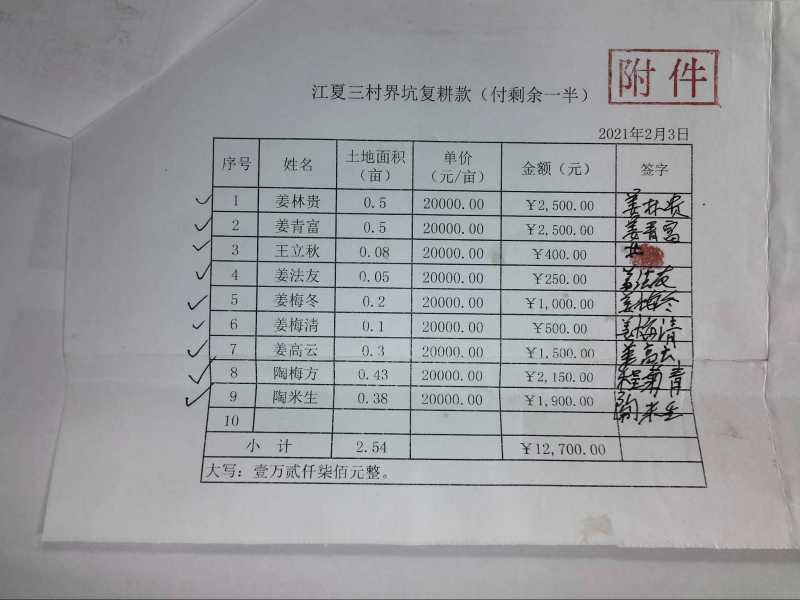 附件
江夏三村界坑复耕款（付剩余一半）
2021年2月3日
序号 姓名 土地面积（亩） 单价（元/亩） 金额（元） 签字
1 姜林贵 0.5 20000.00 ￥2,500.00 姜林贵
2 姜青富 0.5 20000.00 ￥2,500.00 姜青富
3 王立秋 0.08 20000.00 ￥400.00
4 姜法友 0.05 20000.00 ￥250.00 姜法友
5 姜梅冬 0.2 20000.00 ￥1,000.00 姜梅冬
6 姜梅清 0.1 20000.00 ￥500.00 姜梅清
7 姜高云 0.3 20000.00 ￥1,500.00 姜高云
8 陶梅方 0.43 20000.00 ￥2,150.00 程菊青
9 陶米生 0.38 20000.00 ￥1,900.00 陶米生
10
小 计 2.54 ￥12,700.00
大写：壹万贰仟柒佰元整。